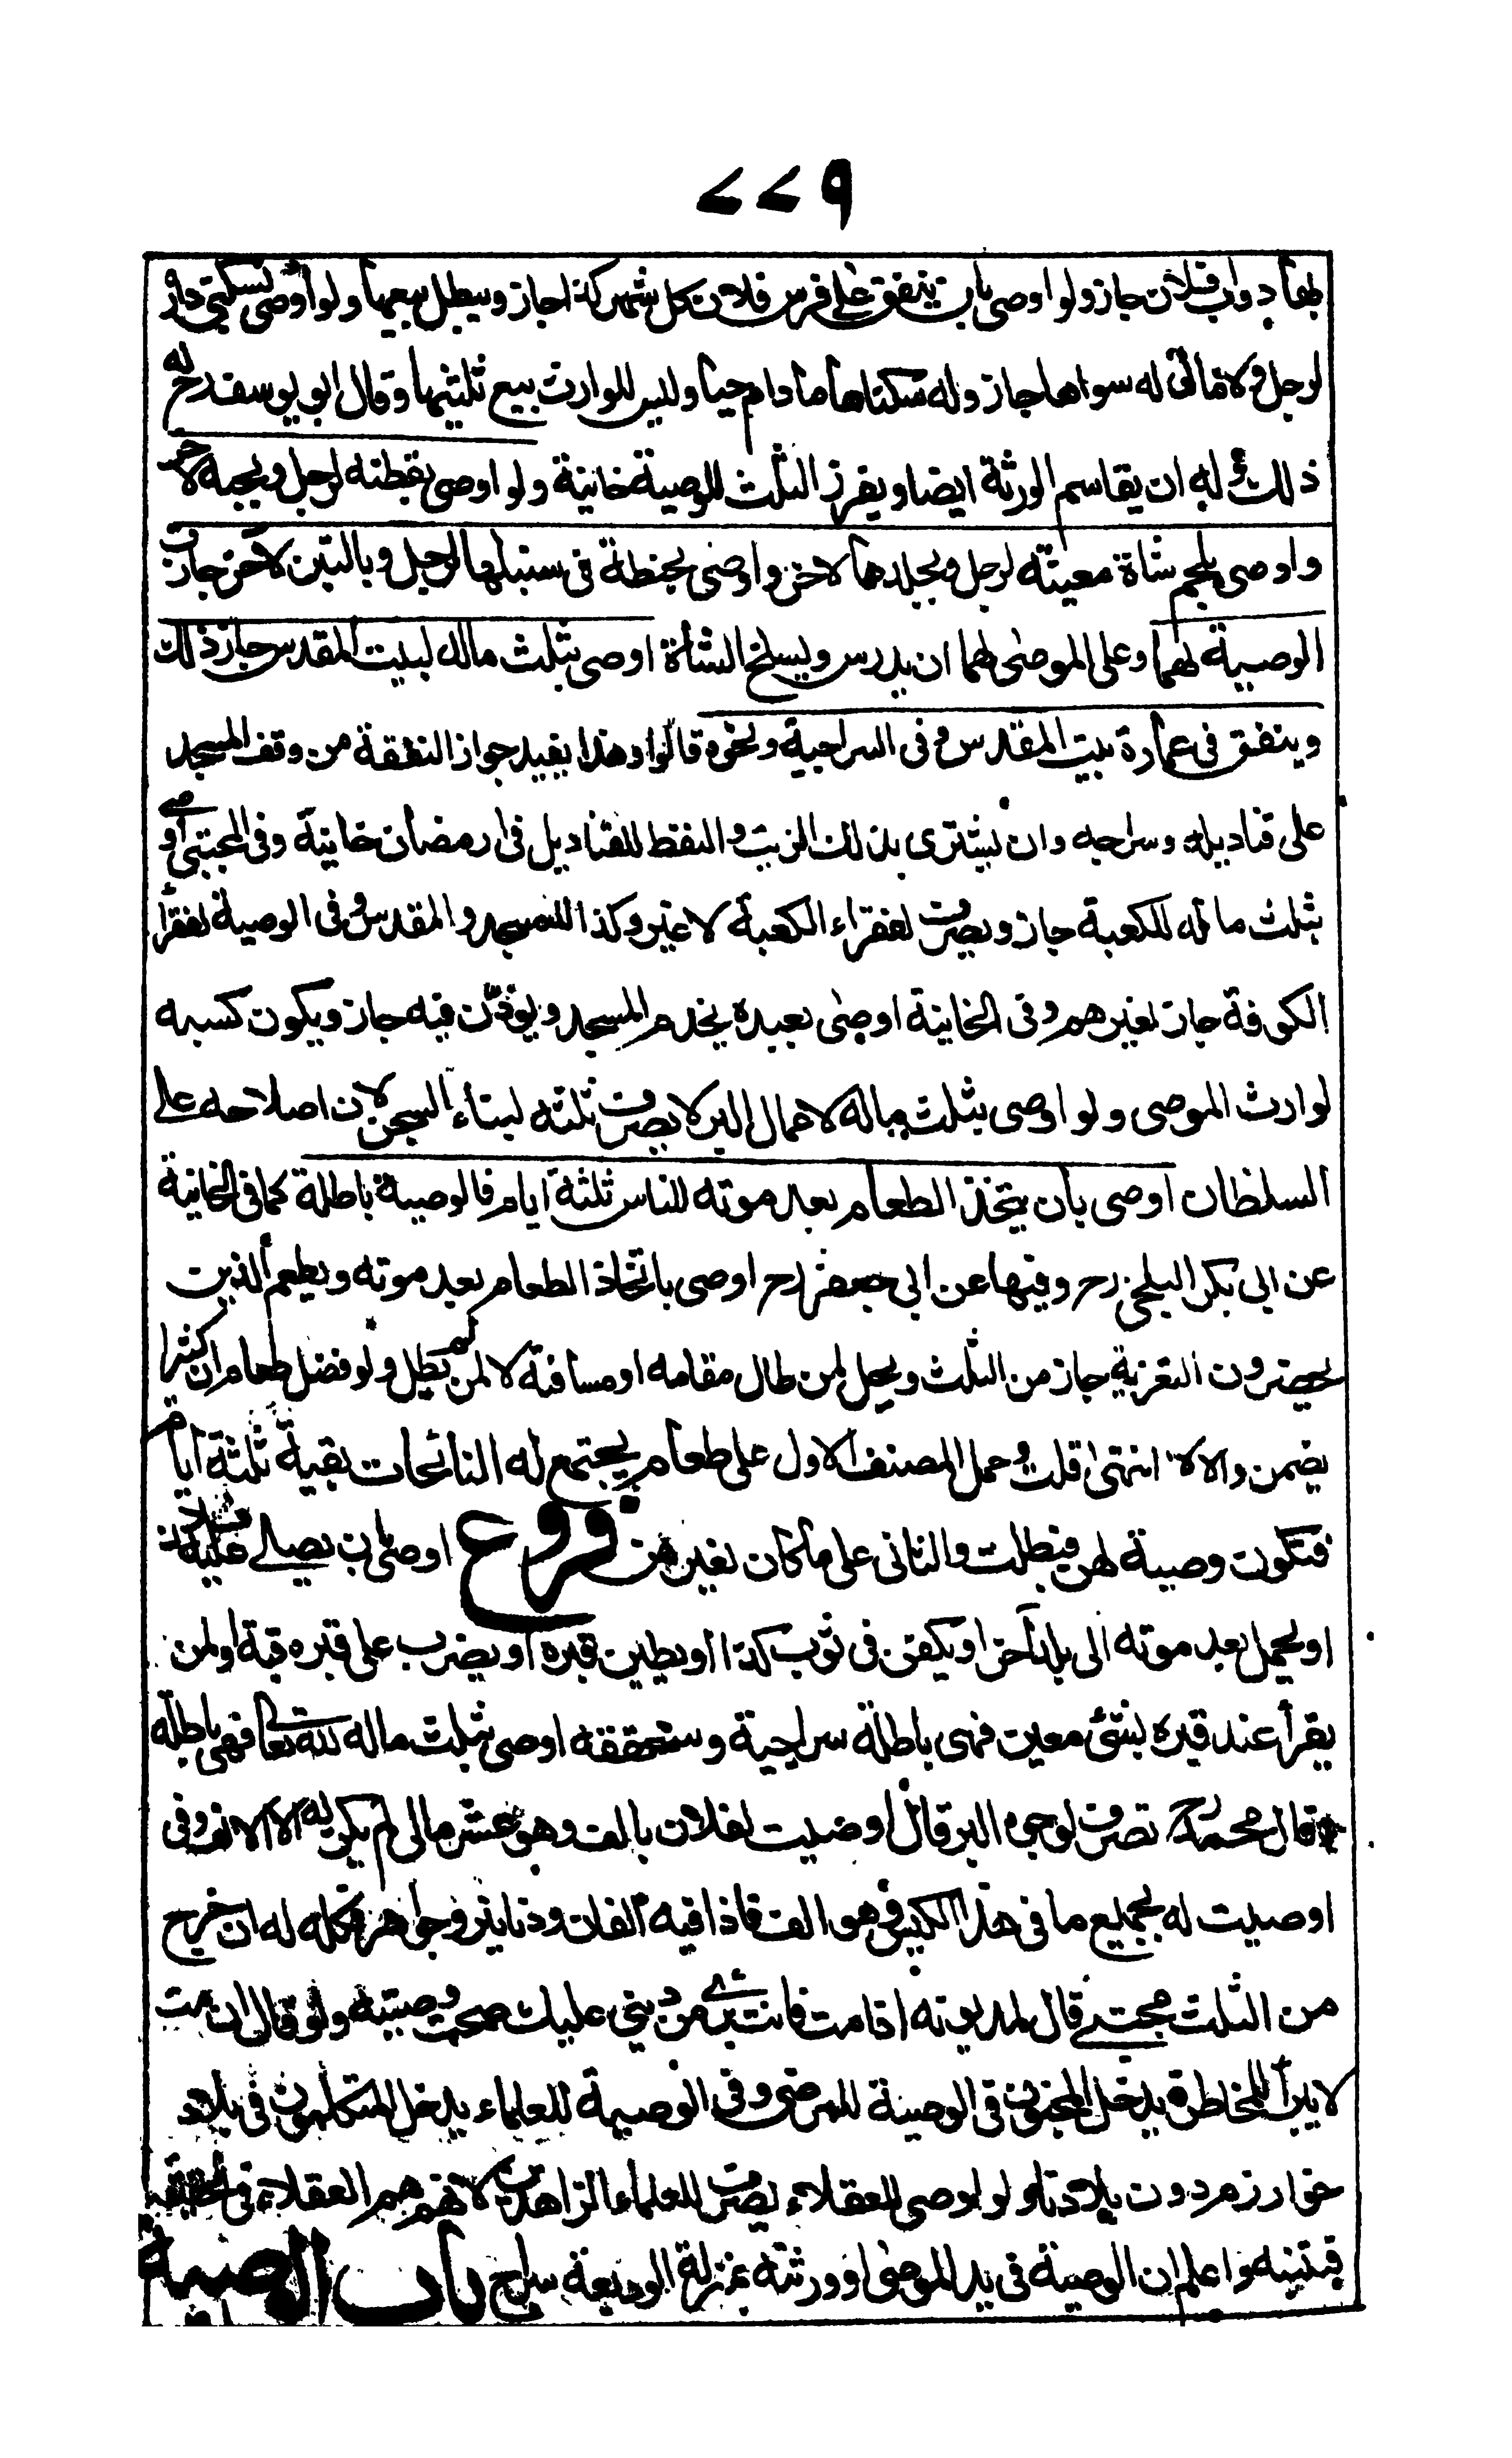 ٧٧٩
بها دواب فلان جاز ولو اوصى بان ينفق على فرس فلان كل شهر كذا جاز ويبطل ببيعها ولو اوصى بسكنى داره
لرجل ولا مال له سواها جاز وله سكناها ما دام حيا وليس للوارث بيع ثلثيها وقال ابو يوسف رح له
ذلك وله ان يقاسم الورثة ايضا ويفرز الثلث للوصية خانية ولو اوصى بقطنه لرجل وبحبه لاخر
واوصى بلحم شاة معينه لرجل وبجلدها لاخر واوصى بحنطة فى سنبلها لرجل وبالتبن لاخر جازت
الوصية لهما وعلى الموصى لهما ان يدرس ويسلخ الشاة اوصى بثلث ماله لبيت المقدس جاز ذلك
وينفق فى عمارة بيت المقدس وفى السراجية ونحوه قالوا وهذا يفيد جواز النفقة من وقف المسجد
على قناديله وسراجه وان يشترى بذلك الزيت والنفط للقناديل فى رمضان خانية وفى المجتبى اوصى
بثلث ماله للكعبة جاز ويصرف لفقراء الكعبة لا غير وكذا للمسجد والمقدس وفى الوصية لفقراء
الكوفة جاز لغيرهم وفى الخانية اوصى بعبده يخدم المسجد ويوذن فيه جاز ويكون كسبه
لوارث الموصى ولو اوصى بثلث ماله لاعمال البر لا يصرف ثلثه لبناء السجن لان اصلاحه على
السلطان اوصى بان يتخذ الطعام بعد موته للناس ثلثة ايام فالوصية باطلة كما فى الخانية
عن ابى بكر البلخى رح وفيها عن ابى جعفر رح اوصى باتخاذ الطعام بعد موته ويطعم الذين
يحضرون التعزية جاز من الثلث ويحل لمن طال مقامه او مسافته لا لمن لم يطل ولو فضل طعام ان كثيرا
يضمن والا لا انتهى قلت وحمل المصنف الاول على طعام يجتمع له النائحات بقية ثلثة ايام
فتكون وصية لهن فبطلت والثانى على ما كان لغيرهن فروع اوصى بان يصلى عليه فلان
او يحمل بعد موته الى بلد اخر او يكفن فى ثوب كذا او يطين قبره او يضرب على قبره قبة او لمن
يقرأ عند قبره بشئ معين فهى باطلة سراجية وسنحققه اوصى بثلث ماله لله تعالى فهى باطلة
وقال محمد رح تصرف لوجوه البر قال اوصيت لفلان بالف وهو عشر مالى لم يكن له الا الالف وفى
اوصيت له بجميع ما فى هذا الكيس وهو الف فاذا فيه الفان ودنانير وجواهر فكله له ان خرج
من الثلث مجتبى قال لمديونه اذا مت فانت برئ من دينى عليك صحت وصيته ولو قال ان مت
لا يبرأ للمخاطرة يدخل المجنون فى الوصية للمرضى وفى الوصية للعلماء يدخل المتكلمون فى بلاد
خوارزم دون بلادنا ولو اوصى للعقلاء يصرف للعلماء الزاهدين لانهم هم العقلاء فى الحقيقة
فتنبه واعلم ان الوصية فى يد الموصى او ورثته بمنزلة الوديعة سراج باب الوصية